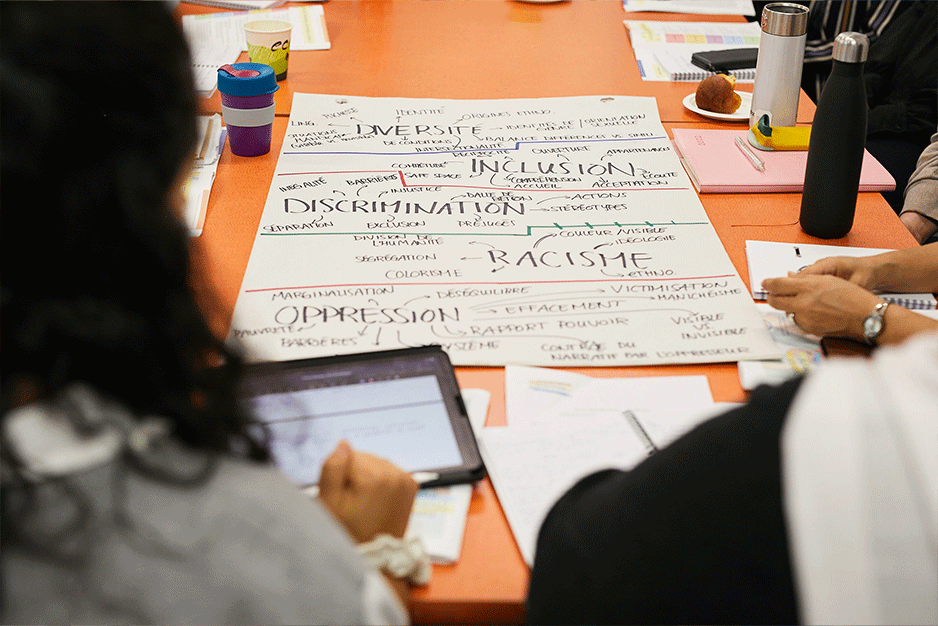 RICHESSE IDENTITÉ ORIGINES ETHNO.
LING. DIVERSITÉ IDENTITÉS DE / ORIENTATION
SEXUELLE
SITUATIONS DE CONDITIONS VISIBLE
INTERSECTIONNALITÉ DIFFÉRENCES VS SIMIL.
RESPECT OUVERTURE APPARTENANCE
CONFIANCE SAFE SPACE INCLUSION ÉCOUTE
COMPRÉHENSION
ACCUEIL ACCEPTATION
INÉGALITÉ BARRIÈRES INJUSTICE
DISCRIMINATION ACTIONS
STÉRÉOTYPES
SÉPARATION EXCLUSION PRÉJUGÉS
DIVISION DE
L'HUMANITÉ COULEUR/VISIBLE
IDÉOLOGIE
SÉGRÉGATION RACISME
COLORISME ETHNO.
MARGINALISATION DÉSÉQUILIBRE VICTIMISATION
EFFACEMENT MANICHÉISME
OPPRESSION
PAUVRETÉ RAPPORT POUVOIR VISIBLE
VS
INVISIBLE
BARRIÈRES SYSTÈME CONTRÔLE DU
NARRATIF PAR L'OPPRESSEUR